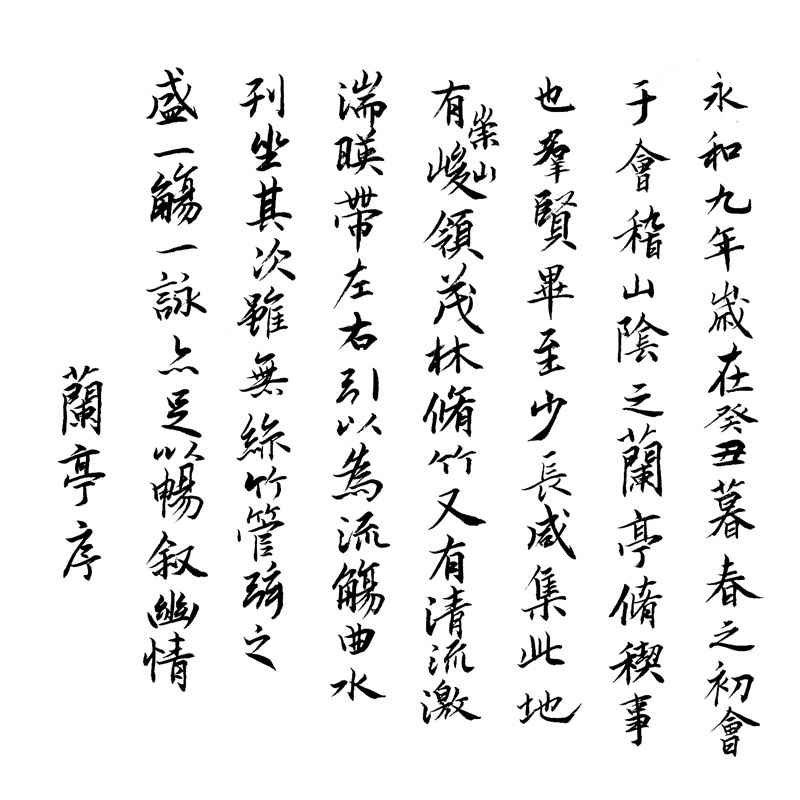 永和九年歲在癸丑暮春之初會
于會稽山陰之蘭亭脩稧事
也羣賢畢至少長咸集此地
有崇山峻領茂林脩竹又有清流激
湍暎帶左右引以為流觴曲水
列坐其次雖無絲竹管弦之
盛一觴一詠亦足以暢叙幽情
蘭亭序